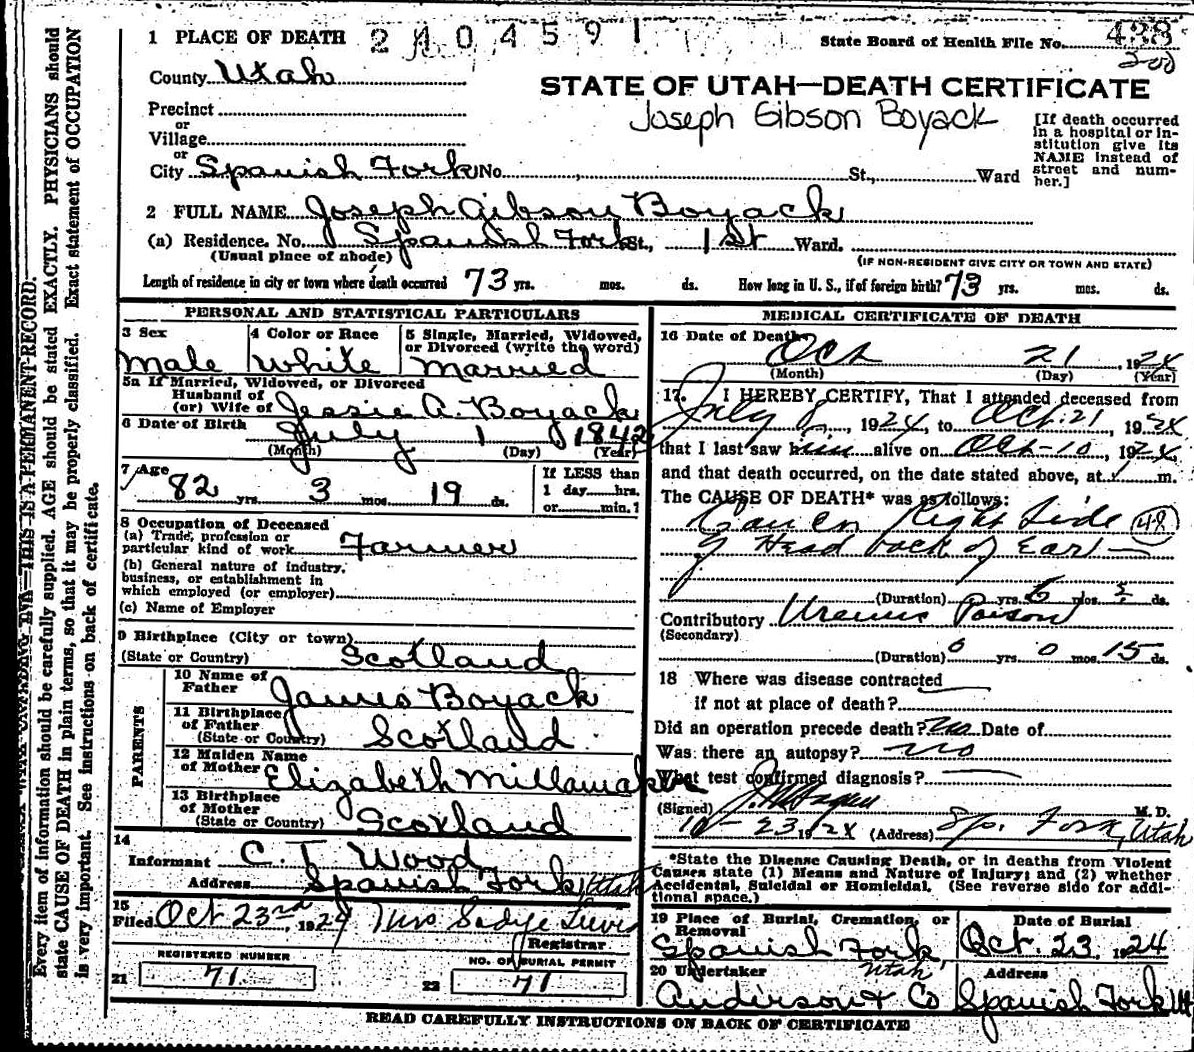 1 PLACE OF DEATH 2404591
State Board of Health File No. 438
200
County Utah
STATE OF UTAH—DEATH CERTIFICATE
Joseph Gibson Boyack
Precinct
or
Village
or
City Spanish Fork No. St., Ward
[If death occurred
in a hospital or in-
stitution give its
NAME instead of
street and num-
ber.]
2 FULL NAME Joseph Gibson Boyack
(a) Residence. No. Spanish Fork St., 1st Ward.
(Usual place of abode) (IF NON-RESIDENT GIVE CITY OR TOWN AND STATE)
Length of residence in city or town where death occurred 73 yrs. mos. ds. How long in U. S., if of foreign birth? 73 yrs. mos. ds.
PERSONAL AND STATISTICAL PARTICULARS
3 Sex 4 Color or Race 5 Single, Married, Widowed,
or Divorced (write the word)
Male White Married
5a If Married, Widowed, or Divorced
Husband of
(or) Wife of Jessie A. Boyack
6 Date of Birth July 1 1842
(Month) (Day) (Year)
7 Age If LESS than
82 yrs. 3 mos. 19 ds. 1 day hrs.
or min.?
8 Occupation of Deceased
(a) Trade, profession or
particular kind of work Farmer
(b) General nature of industry,
business, or establishment in
which employed (or employer)
(c) Name of Employer
9 Birthplace (City or town)
(State or Country) Scotland
PARENTS
10 Name of
Father James Boyack
11 Birthplace
of Father
(State or Country) Scotland
12 Maiden Name
of Mother Elizabeth Millamaker
13 Birthplace
of Mother
(State or Country) Scotland
14
Informant C. T. Wood
Address Spanish Fork, Utah
15
Filed Oct 23rd, 1924 Mrs
Registrar
REGISTERED NUMBER NO. OF BURIAL PERMIT
21 71 22 71
MEDICAL CERTIFICATE OF DEATH
16 Date of Death Oct 21, 1924
(Month) (Day) (Year)
17. I HEREBY CERTIFY, That I attended deceased from
July 8, 1924, to Oct. 21, 1924
that I last saw him alive on Oct-10, 1924,
and that death occurred, on the date stated above, at m.
The CAUSE OF DEATH* was as follows:
Cancer Right Side 48
of Head back of Ear
(Duration) yrs. 6 mos. ds.
Contributory Uremic Poison
(Secondary)
(Duration) 0 yrs 0 mos. 15 ds.
18 Where was disease contracted
if not at place of death?
Did an operation precede death? no Date of
Was there an autopsy? no
What test confirmed diagnosis?
(Signed) M. D.
10-23 1924 (Address) Sp. Fork, Utah
*State the Disease Causing Death, or in deaths from Violent
Causes state (1) Means and Nature of Injury; and (2) whether
Accidental, Suicidal or Homicidal. (See reverse side for addi-
tional space.)
19 Place of Burial, Cremation, or Date of Burial
Removal
Spanish Fork, Utah Oct. 23, 1924
20 Undertaker Address
Anderson & Co Spanish Fork Ut
READ CAREFULLY INSTRUCTIONS ON BACK OF CERTIFICATE
THIS IS A PERMANENT RECORD.
Every item of information should be carefully supplied. AGE should be stated EXACTLY. PHYSICIANS should
state CAUSE OF DEATH in plain terms, so that it may be properly classified. Exact statement of OCCUPATION
is very important. See instructions on back of certificate.